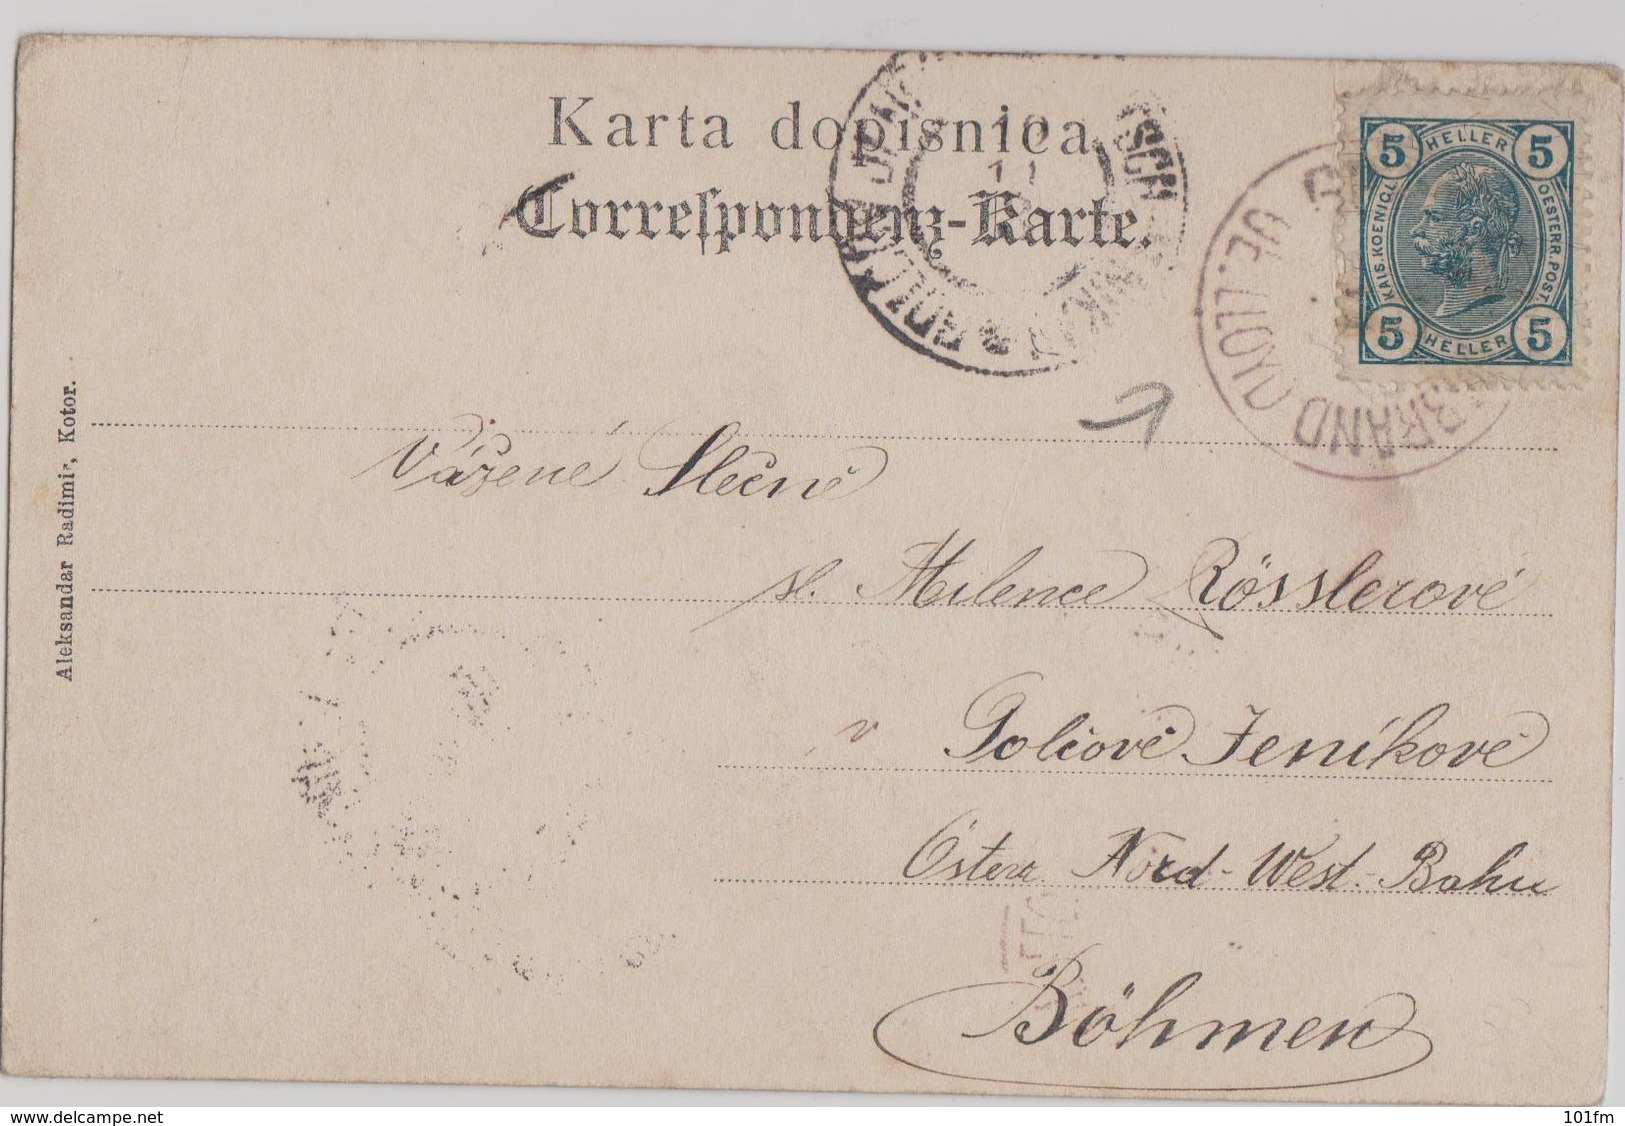 Karta dopisnica
Correspondenz-Karte.
HELLER
5 5
KAIS. KOENIGL. OESTERR. POST.
5 5
HELLER
Aleksandar Radimir, Kotor.
Vážené Slečně
sl. Milence Rösslerové
v Golčově Jeníkově
Österr Nord-West-Bahn
Böhmen
www.delcampe.net
101fm